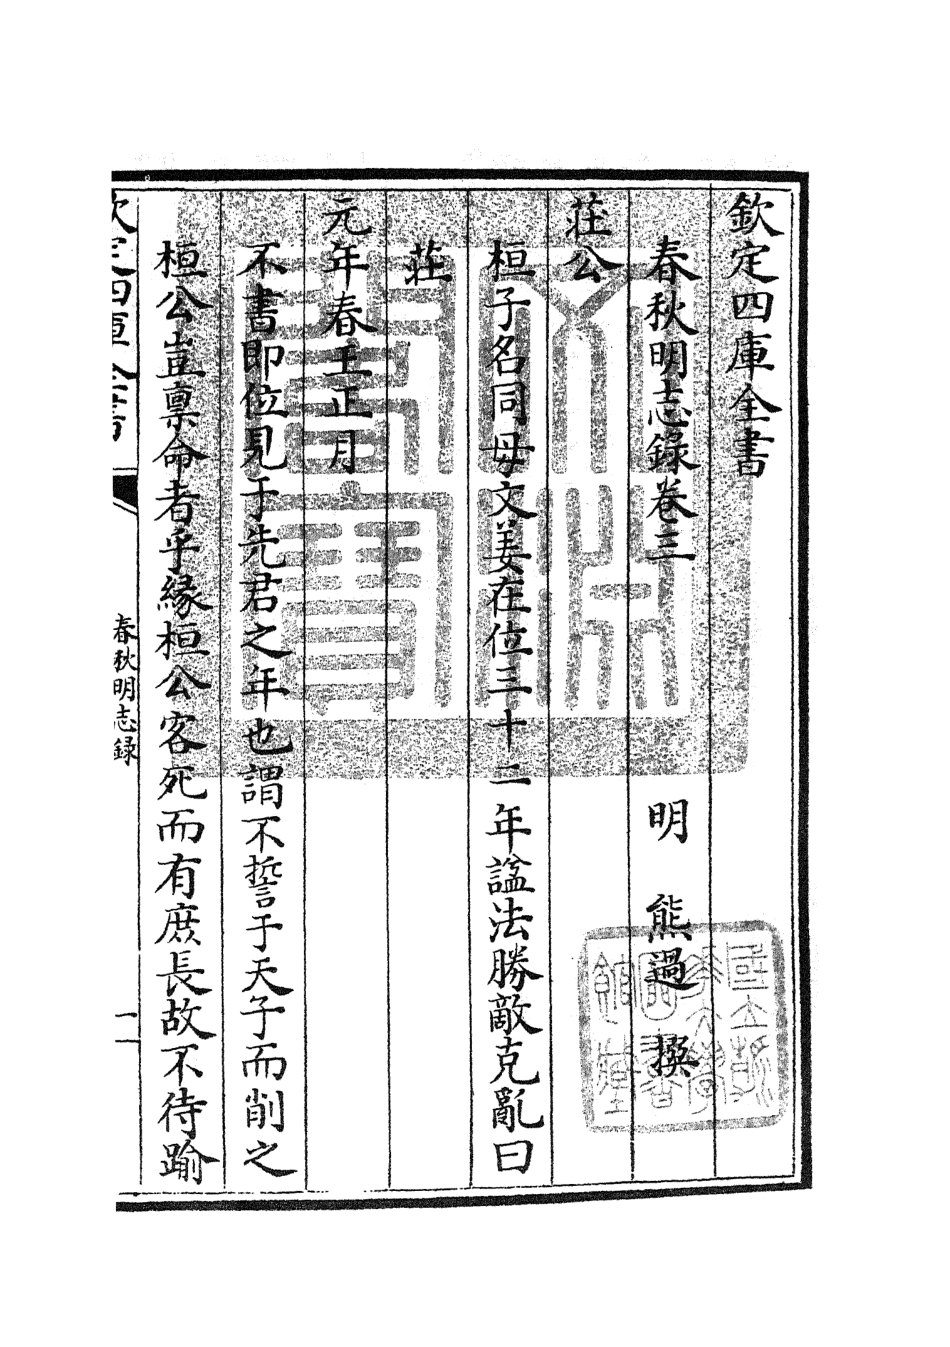 欽定四庫全書
春秋明志錄卷三
明　熊過　撰
莊公
桓子名同母文姜在位三十二年諡法勝敵克亂曰
莊
元年春王正月
不書即位見于先君之年也謂不誓于天子而削之
桓公豈禀命者乎緣桓公客死而有庶長故不待踰
欽定四庫全書
春秋明志録
一